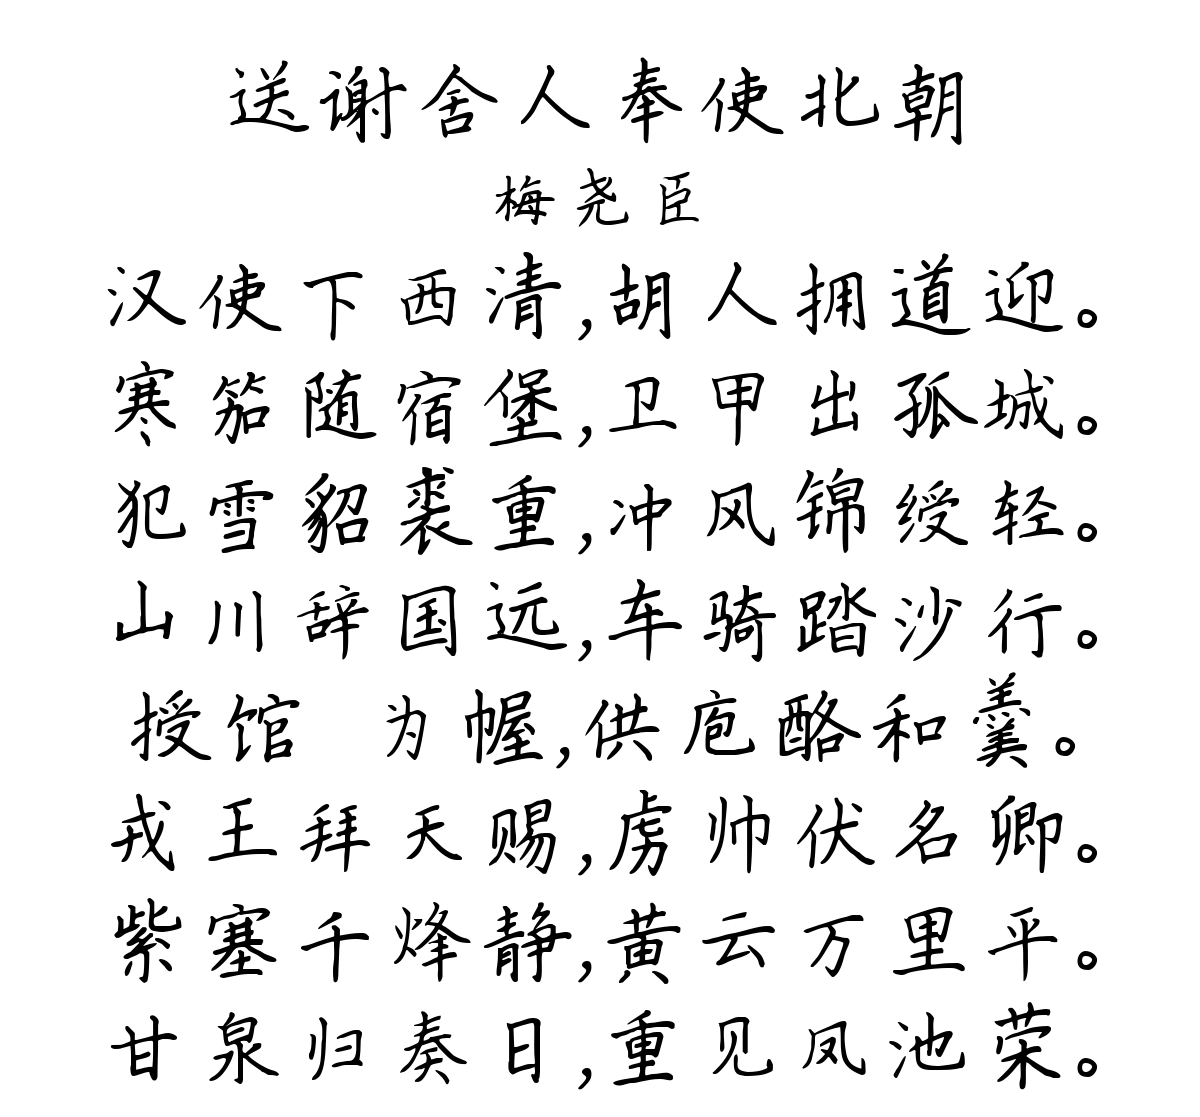 送谢舍人奉使北朝
梅尧臣
汉使下西清,胡人拥道迎。
寒笳随宿堡,卫甲出孤城。
犯雪貂裘重,冲风锦绶轻。
山川辞国远,车骑踏沙行。
授馆 为幄,供庖酪和羹。
戎王拜天赐,虏帅伏名卿。
紫塞千烽静,黄云万里平。
甘泉归奏日,重见凤池荣。